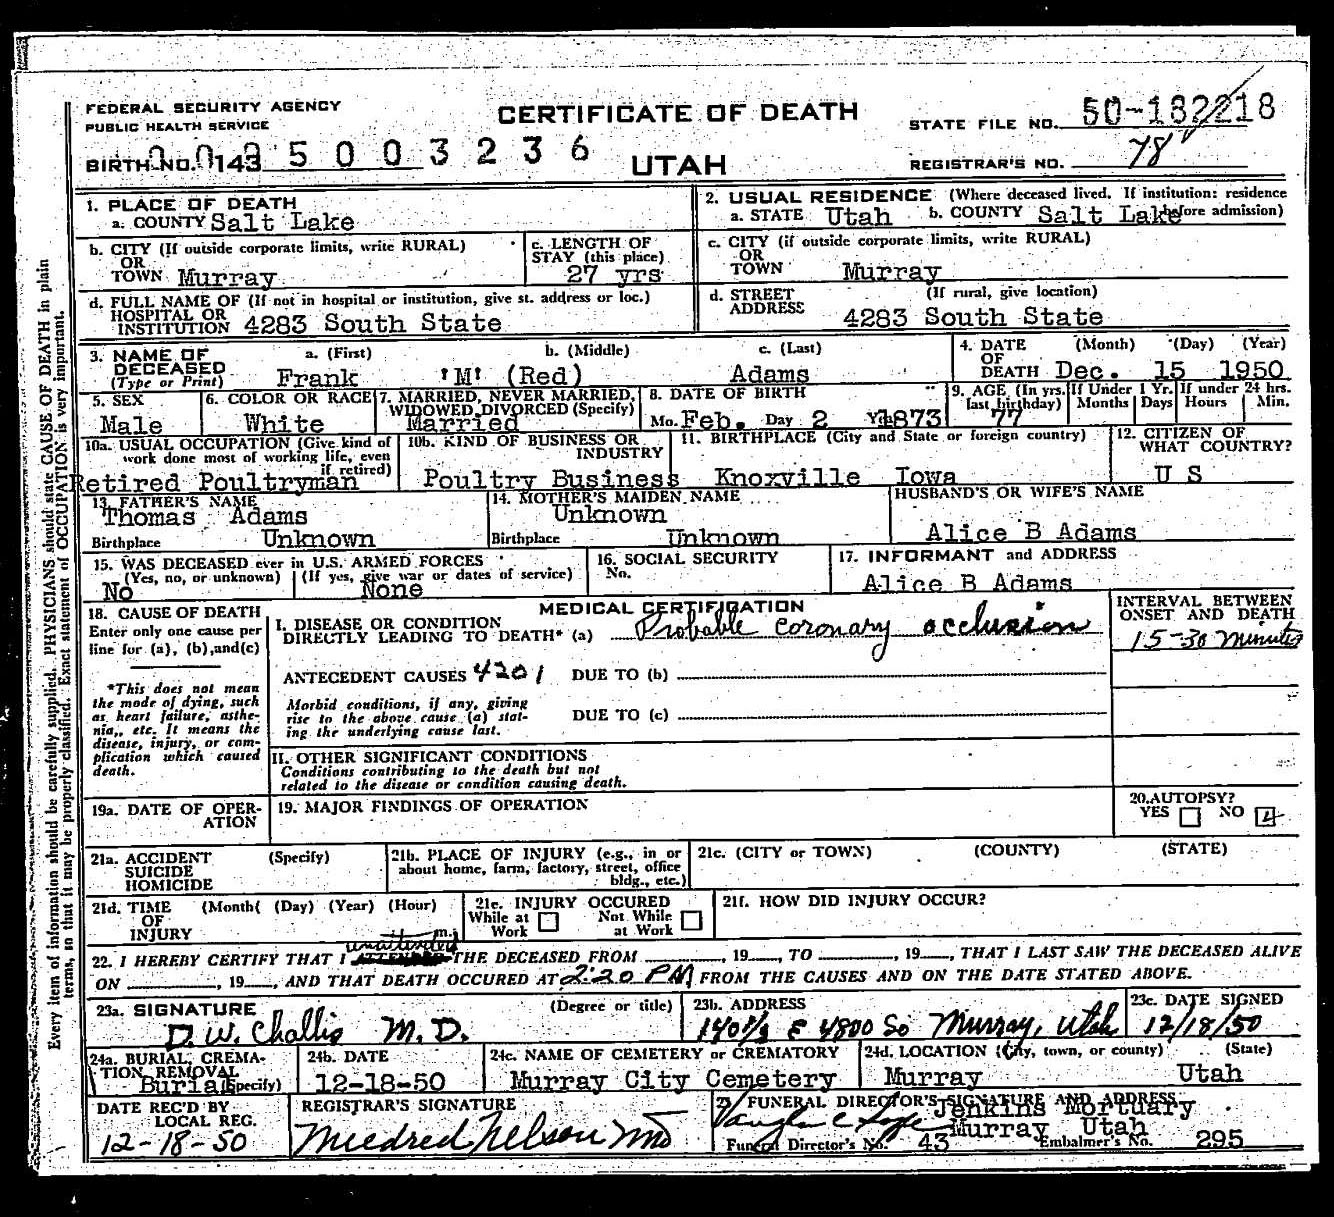 FEDERAL SECURITY AGENCY
PUBLIC HEALTH SERVICE
CERTIFICATE OF DEATH
STATE FILE NO. 50-182218
BIRTH NO. 143 5003236
UTAH
REGISTRAR'S NO. 78
Every item of information should be carefully supplied. PHYSICIANS should state CAUSE OF DEATH in plain
terms, so that it may be properly classified. Exact statement of OCCUPATION is very important.
1. PLACE OF DEATH
a. COUNTY Salt Lake
2. USUAL RESIDENCE (Where deceased lived. If institution: residence
a. STATE Utah b. COUNTY Salt Lake before admission)
b. CITY (If outside corporate limits, write RURAL)
OR
TOWN Murray
c. LENGTH OF
STAY (this place)
27 yrs
c. CITY (if outside corporate limits, write RURAL)
OR
TOWN Murray
d. FULL NAME OF (If not in hospital or institution, give st. address or loc.)
HOSPITAL OR
INSTITUTION 4283 South State
d. STREET (If rural, give location)
ADDRESS 4283 South State
3. NAME OF a. (First) b. (Middle) c. (Last)
DECEASED
(Type or Print) Frank 'M' (Red) Adams
4. DATE (Month) (Day) (Year)
OF
DEATH Dec. 15 1950
5. SEX
Male
6. COLOR OR RACE
White
7. MARRIED, NEVER MARRIED,
WIDOWED, DIVORCED (Specify)
Married
8. DATE OF BIRTH
Mo. Feb. Day 2 Yr 1873
9. AGE (In yrs. last birthday)
77
If Under 1 Yr.
Months Days
If under 24 hrs.
Hours Min.
10a. USUAL OCCUPATION (Give kind of
work done most of working life, even
if retired)
Retired Poultryman
10b. KIND OF BUSINESS OR
INDUSTRY
Poultry Business
11. BIRTHPLACE (City and State or foreign country)
Knoxville Iowa
12. CITIZEN OF
WHAT COUNTRY?
U S
13. FATHER'S NAME
Thomas Adams
Birthplace Unknown
14. MOTHER'S MAIDEN NAME
Unknown
Birthplace Unknown
HUSBAND'S OR WIFE'S NAME
Alice B Adams
15. WAS DECEASED ever in U.S. ARMED FORCES
(Yes, no, or unknown) (If yes, give war or dates of service)
No None
16. SOCIAL SECURITY
No.
17. INFORMANT and ADDRESS
Alice B Adams
18. CAUSE OF DEATH
Enter only one cause per
line for (a), (b), and (c)
*This does not mean
the mode of dying, such
as heart failure, asthe-
nia, etc. It means the
disease, injury, or com-
plication which caused
death.
MEDICAL CERTIFICATION
I. DISEASE OR CONDITION
DIRECTLY LEADING TO DEATH* (a) Probable coronary occlusion
INTERVAL BETWEEN
ONSET AND DEATH
15-30 minutes
ANTECEDENT CAUSES 4201 DUE TO (b)
Morbid conditions, if any, giving
rise to the above cause (a) stat-
ing the underlying cause last.
DUE TO (c)
II. OTHER SIGNIFICANT CONDITIONS
Conditions contributing to the death but not
related to the disease or condition causing death.
19a. DATE OF OPER-
ATION
19. MAJOR FINDINGS OF OPERATION
20. AUTOPSY?
YES NO
21a. ACCIDENT (Specify)
SUICIDE
HOMICIDE
21b. PLACE OF INJURY (e.g., in or
about home, farm, factory, street, office
bldg., etc.)
21c. (CITY or TOWN) (COUNTY) (STATE)
21d. TIME (Month( (Day) (Year) (Hour)
OF
INJURY m.
21e. INJURY OCCURED
While at Work Not While at Work
21f. HOW DID INJURY OCCUR?
unattended
22. I HEREBY CERTIFY THAT I ATTENDED THE DECEASED FROM , 19 , TO , 19 , THAT I LAST SAW THE DECEASED ALIVE
ON , 19 , AND THAT DEATH OCCURED AT 2:20 PM, FROM THE CAUSES AND ON THE DATE STATED ABOVE.
23a. SIGNATURE (Degree or title)
D. W. Challis M. D.
23b. ADDRESS
140 1/2 E 4800 So Murray, Utah
23c. DATE SIGNED
12/18/50
24a. BURIAL, CREMA-
TION REMOVAL
Burial (Specify)
24b. DATE
12-18-50
24c. NAME OF CEMETERY or CREMATORY
Murray City Cemetery
24d. LOCATION (City, town, or county) (State)
Murray Utah
DATE REC'D BY
LOCAL REG.
12-18-50
REGISTRAR'S SIGNATURE
Mildred Nelson MD
FUNERAL DIRECTOR'S SIGNATURE AND ADDRESS
Jenkins Mortuary
Murray Utah
Funeral Director's No. 43 Embalmer's No. 295